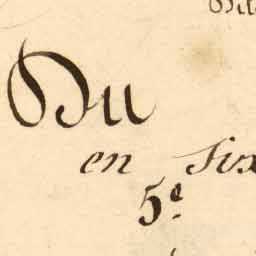 Du
en Six
5e